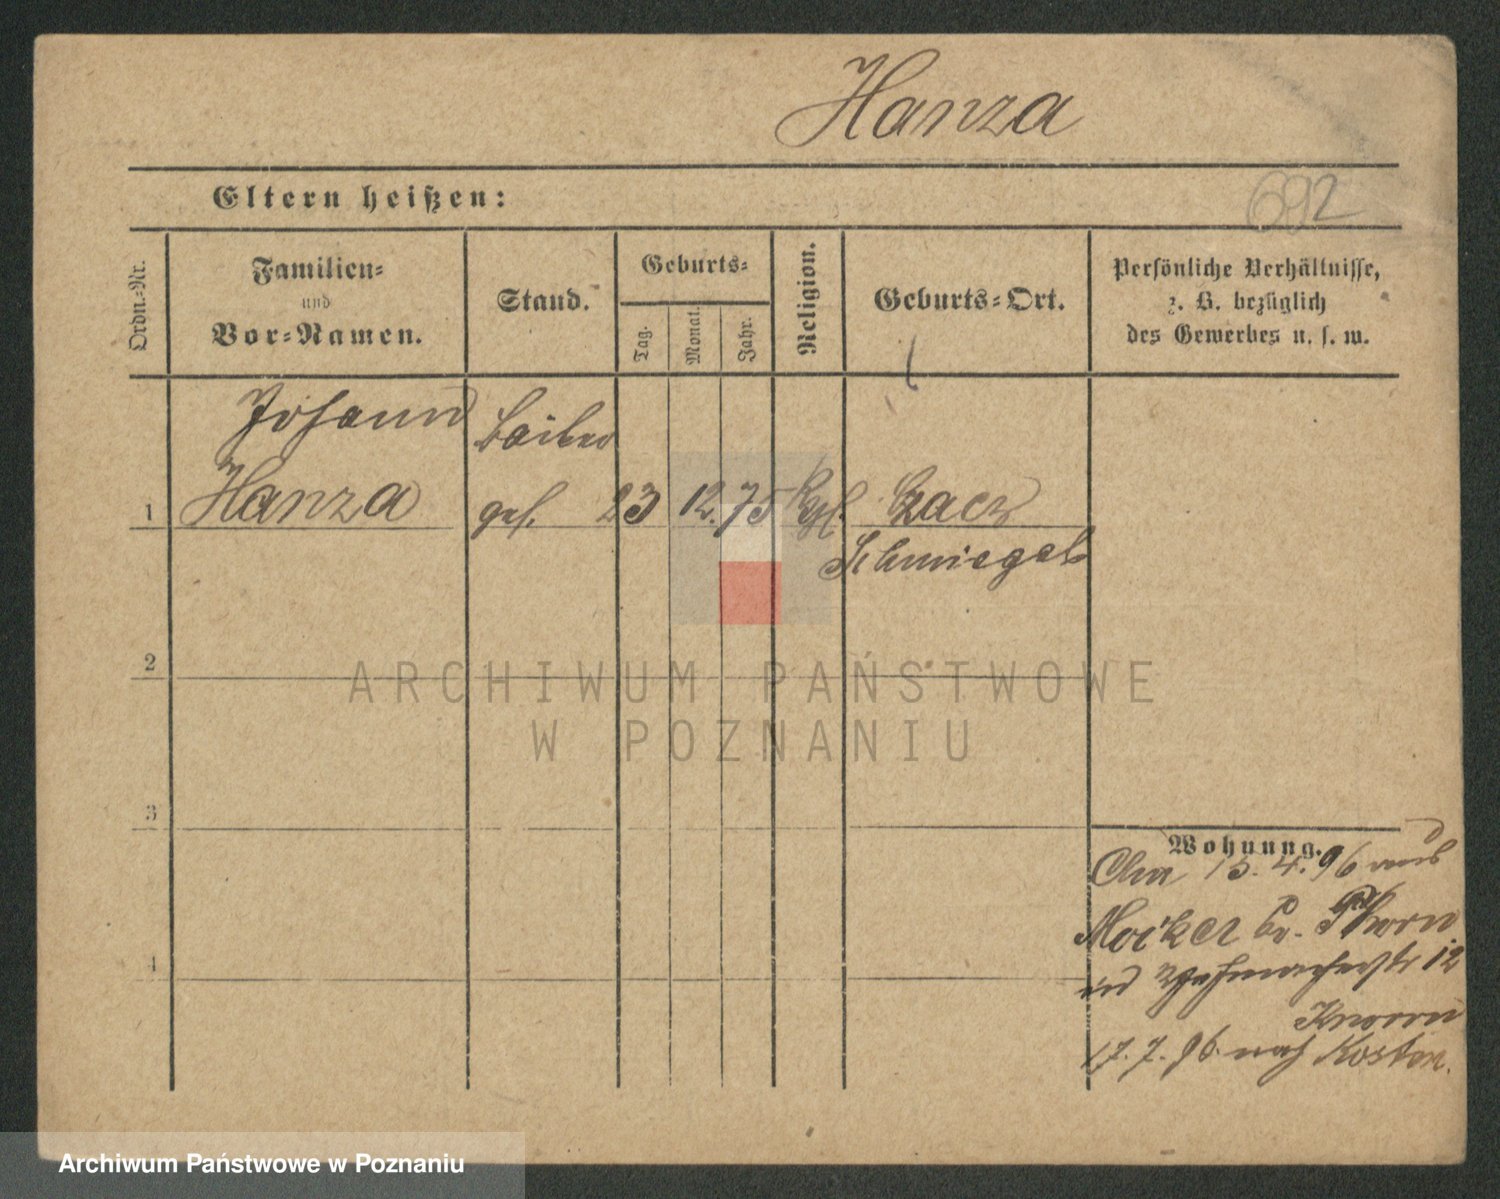 Hanza
Eltern heißen:
692
Ordn.-Nr.
Familien-
und
Vor-Namen.
Stand.
Geburts-
Tag.
Monat.
Jahr.
Religion.
Geburts-Ort.
Persönliche Verhältnisse,
z. B. bezüglich
des Gewerbes u. s. w.
Johann
Hanza
1
ges. 23 12. 75 Czacz
Schmiegel
2
ARCHIWUM PAŃSTWOWE
W POZNANIU
3
Wohnung.
15. 4. 96 aus
Mocker Thorn
in 12
Knorrn
17. 7. 96. nach Kosten.
4
Archiwum Państwowe w Poznaniu